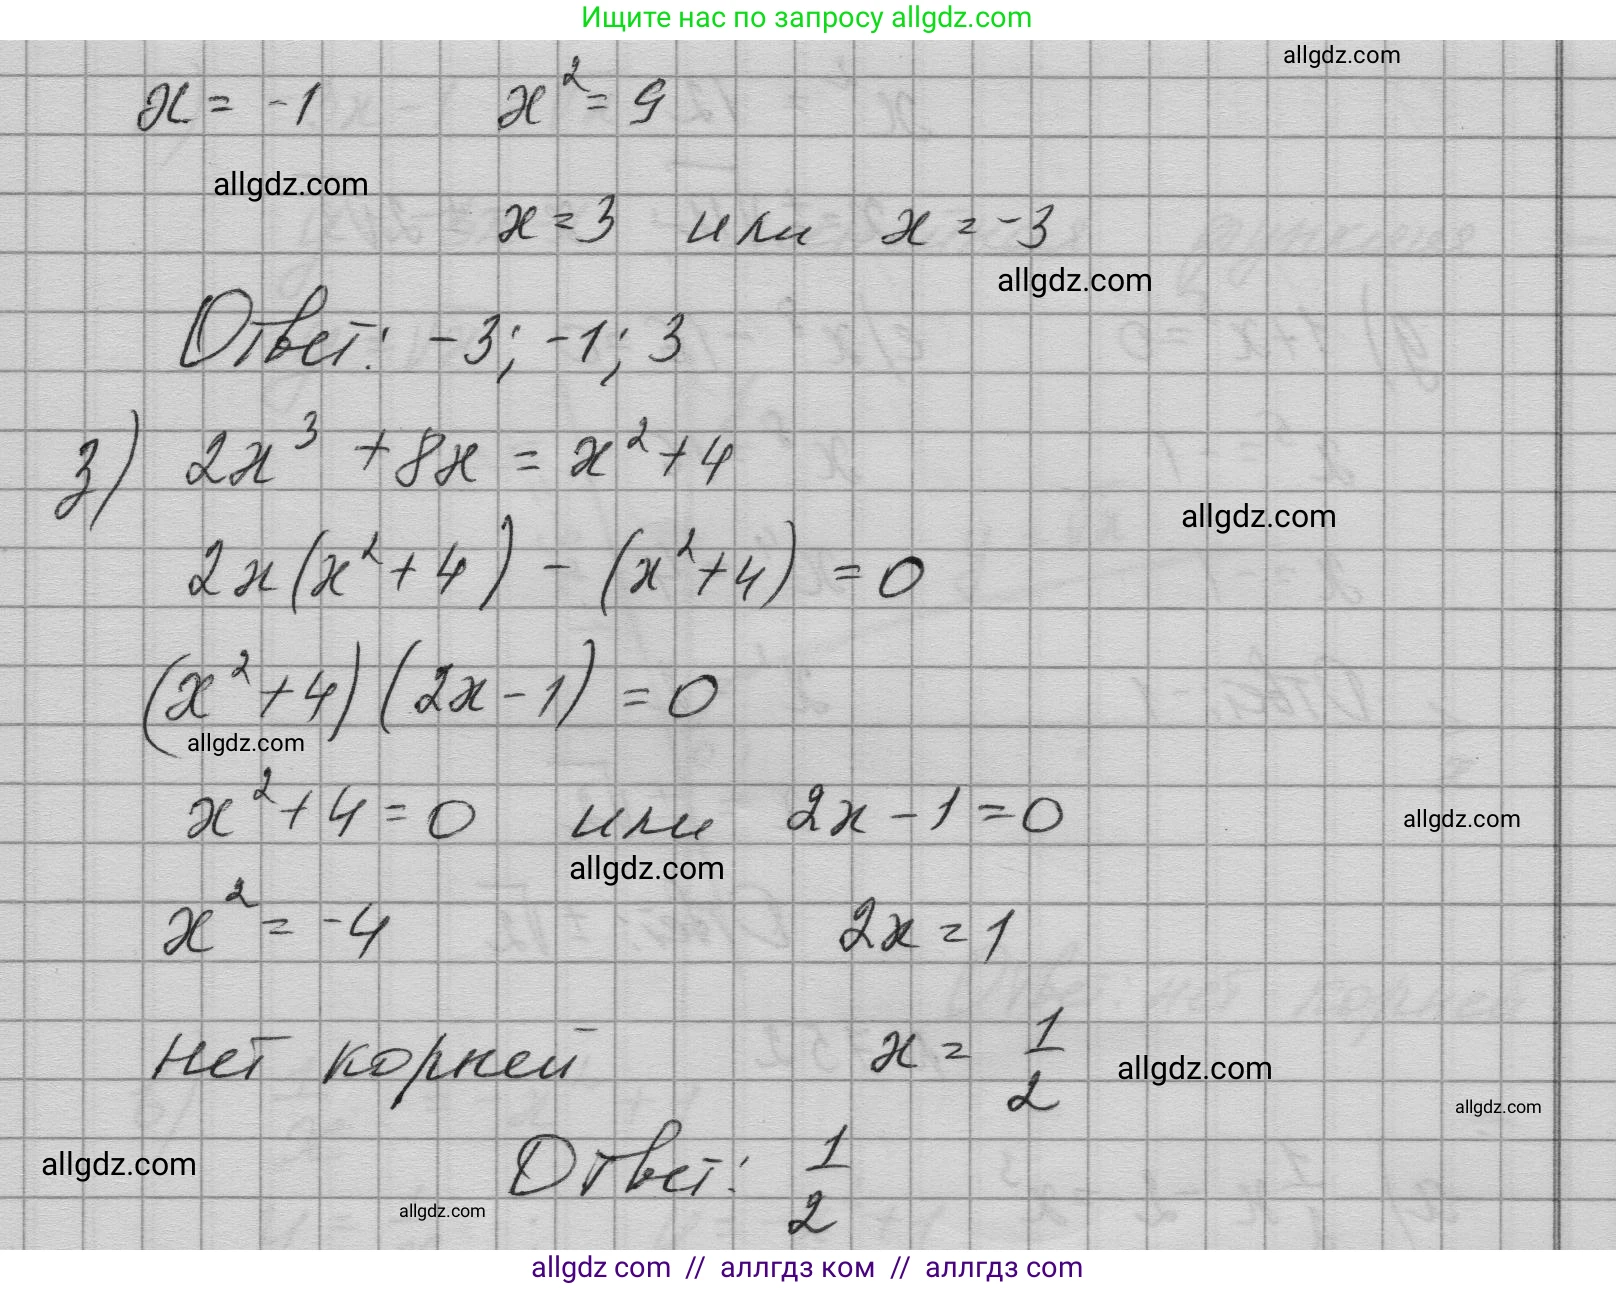 Ищите нас по запросу allgdz.com
allgdz.com
x = -1 x² = 9
allgdz.com
x = 3 или x = -3
allgdz.com
Ответ: -3; -1; 3
з) 2x³ + 8x = x² + 4
allgdz.com
2x(x² + 4) - (x² + 4) = 0
(x² + 4)(2x - 1) = 0
allgdz.com
x² + 4 = 0 или 2x - 1 = 0
allgdz.com
allgdz.com
x² = -4 2x = 1
нет корней x = 1/2
allgdz.com
allgdz.com
Ответ: 1/2
allgdz.com
allgdz.com
allgdz com // аллгдз ком // аллгдз com